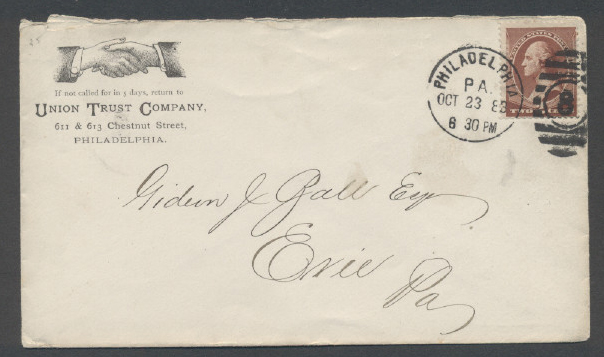 If not called for in 5 days, return to
UNION TRUST COMPANY,
611 & 613 Chestnut Street,
PHILADELPHIA.
PHILADELPHIA
PA.
OCT 23 83
6 30 PM
8
Gideon J Ball Esq
Erie
Pa